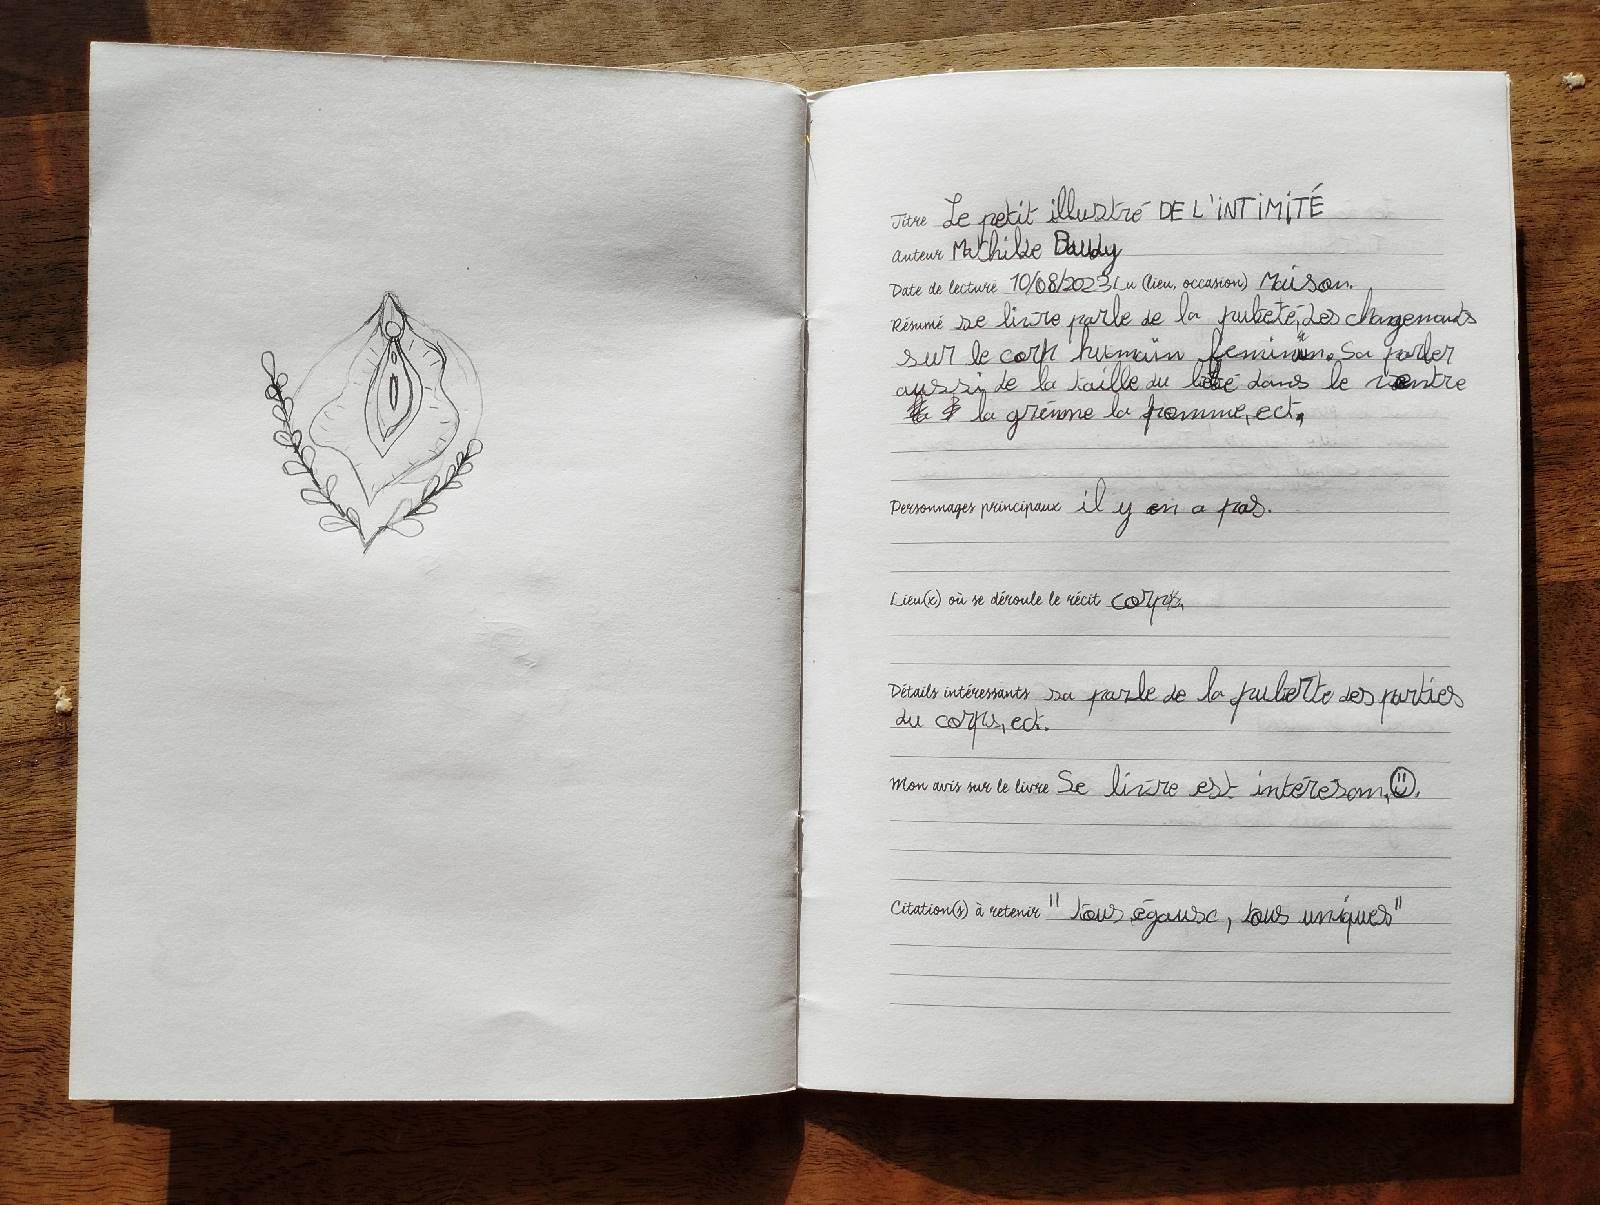 Titre Le petit illustré DE L'iNTiMiTÉ
Auteur Mathilde Baudy
Date de lecture 10/08/2023 Lu (lieu, occasion) Maison.
Résumé se livre parle de la pubeté, des changemants
sur le corp humain feminin. Sa parler
aussi de la taille du bébé dans le ventre
la la femme, ect.
Personnages principaux il y en a pas.
Lieu(x) où se déroule le récit corps.
Détails intéressants sa parle de la puberte des parties
du corps, ect.
Mon avis sur le livre Se livre est intéresan.
Citation(s) à retenir "tous égause, tous uniques"